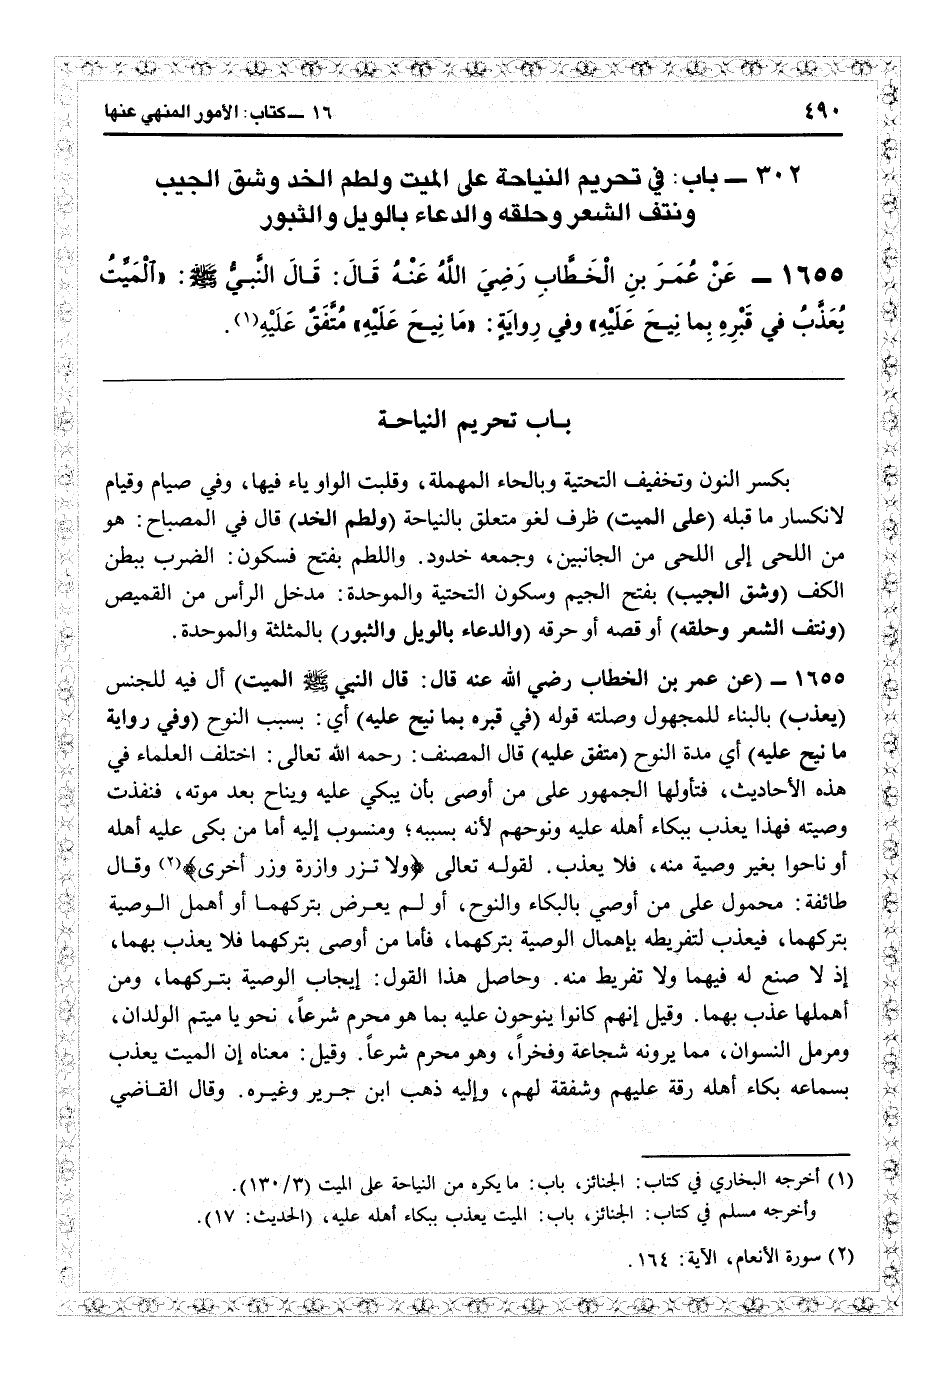 ٤٩٠
١٦ ــ كتاب: الأمور المنهي عنها
٣٠٢ ــ باب: في تحريم النياحة على الميت ولطم الخد وشق الجيب
ونتف الشعر وحلقه والدعاء بالويل والثبور
١٦٥٥ ــ عَنْ عُمَرَ بنِ الْخَطَّابِ رَضِيَ اللَّهُ عَنْهُ قَالَ: قَالَ النَّبيُّ ﷺ: «اَلْمَيِّتُ
يُعَذَّبُ في قَبْرِهِ بِما نِيحَ عَلَيْهِ» وفي رِوايَةٍ: «مَا نِيحَ عَلَيْهِ» مُتَّفَقٌ عَلَيْهِ(١).
بـاب تحريم النياحـة
بكسر النون وتخفيف التحتية وبالحاء المهملة، وقلبت الواو ياء فيها، وفي صيام وقيام
لانكسار ما قبله (على الميت) ظرف لغو متعلق بالنياحة (ولطم الخد) قال في المصباح: هو
من اللحى إلى اللحى من الجانبين، وجمعه خدود. واللطم بفتح فسكون: الضرب ببطن
الكف (وشق الجيب) بفتح الجيم وسكون التحتية والموحدة: مدخل الرأس من القميص
(ونتف الشعر وحلقه) أو قصه أو حرقه (والدعاء بالويل والثبور) بالمثلثة والموحدة.
١٦٥٥ ــ (عن عمر بن الخطاب رضي الله عنه قال: قال النبي ﷺ الميت) أل فيه للجنس
(يعذب) بالبناء للمجهول وصلته قوله (في قبره بما نيح عليه) أي: بسبب النوح (وفي رواية
ما نيح عليه) أي مدة النوح (متفق عليه) قال المصنف: رحمه الله تعالى: اختلف العلماء في
هذه الأحاديث، فتأولها الجمهور على من أوصى بأن يبكي عليه ويناح بعد موته، فنفذت
وصيته فهذا يعذب ببكاء أهله عليه ونوحهم لأنه بسببه؛ ومنسوب إليه أما من بكى عليه أهله
أو ناحوا بغير وصية منه، فلا يعذب. لقولـه تعالى ﴿ولا تـزر وازرة وزر أخرى﴾(٢) وقـال
طائفة: محمول على من أوصي بالبكاء والنوح، أو لـم يعـرض بتركهمـا أو أهمل الـوصية
بتركهما، فيعذب لتفريطه بإهمال الوصية بتركهما، فأما من أوصى بتركهما فلا يعذب بهما،
إذ لا صنع له فيهما ولا تفريط منه. وحاصل هذا القول: إيجاب الوصية بتـركهما، ومن
أهملها عذب بهما. وقيل إنهم كانوا ينوحون عليه بما هو محرم شرعاً، نحو يا ميتم الولدان،
ومرمل النسوان، مما يرونه شجاعة وفخراً، وهو محرم شرعاً. وقيل: معناه إن الميت يعذب
بسماعه بكاء أهله رقة عليهم وشفقة لهم، وإليه ذهب ابن جـرير وغيـره. وقال القـاضي
(١) أخرجه البخاري في كتاب: الجنائز، باب: ما يكره من النياحة على الميت (١٣٠/٣).
وأخرجه مسلم في كتاب: الجنائز، باب: الميت يعذب ببكاء أهله عليه، (الحديث: ١٧).
(٢) سورة الأنعام، الآية: ١٦٤.